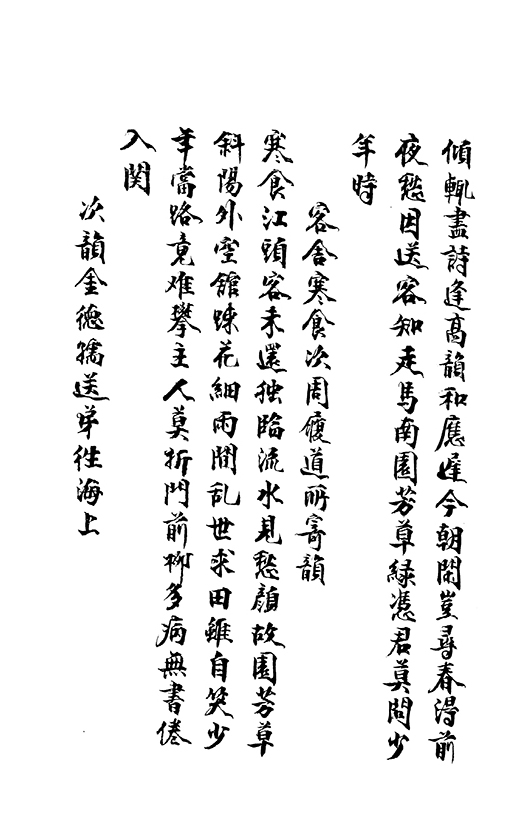 傾輒盡詩逢高韻和應遲今朝閑豈尋春得前
夜愁因送客知走馬南園芳草綠憑君莫問少
年時
客舍寒食次周履道所寄韻
寒食江頭客未還独臨流水見愁顏故園芳草
斜陽外空館踈花細雨間乱世求田雖自笑少
年當路竟难攀主人莫折門前柳多病無書倦
入関
次韻金德孺送弟往海上